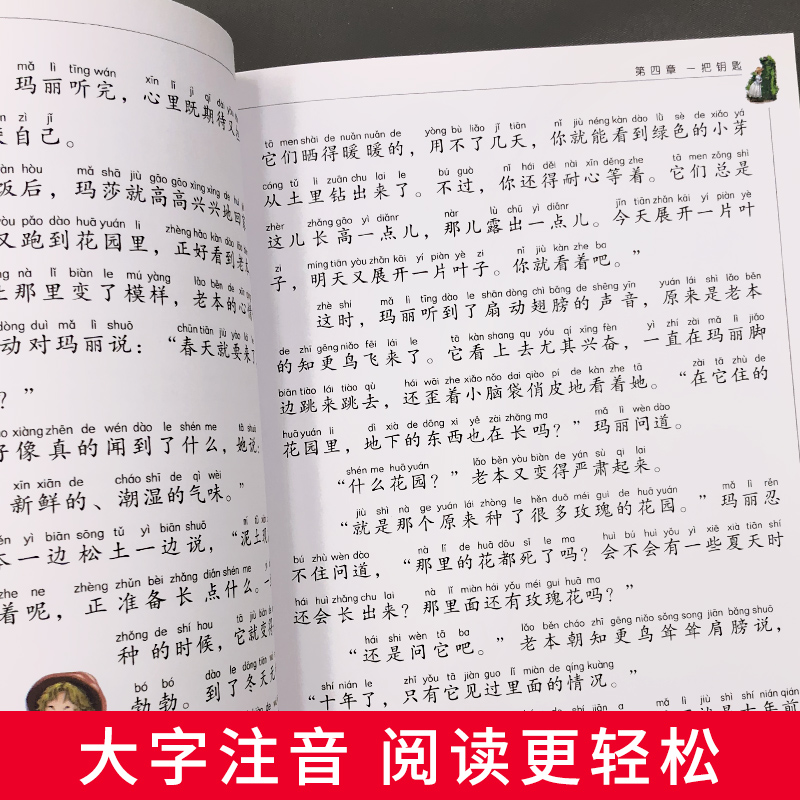 mǎ lì tīng wán xīn lǐ jì qī dài
玛丽听完，心里既期待又
zì jǐ
自己。
hòu mǎ shā jiù gāo gāo xìng xìng de
饭后，玛莎就高高兴兴地
yòu pǎo dào huā yuán lǐ zhèng hǎo kàn dào lǎo
又跑到花园里，正好看到老
nà lǐ biàn le mú yàng lǎo běn de xīn
那里变了模样，老本的心
dòng duì mǎ lì shuō chūn tiān jiù yào lái
动对玛丽说：“春天就要来了
？”
xiàng zhēn de wén dào le shén me tā shuō
好像真的闻到了什么，她说：
xīn xiān de cháo shī de qì wèi
新鲜的、潮湿的气味。”
yì biān sōng tǔ yì biān shuō
本一边松土一边说，“泥土
zhe ne zhèng zhǔn bèi zhǎng diǎn shén me
着呢，正准备长点什么。
zhòng de shí hou
种的时候，它就变得
bó bó dào le dōng tiān
勃勃。到了冬天
第四章 一把钥匙
tā men shài de nuǎn nuǎn de yòng bù liǎo jǐ tiān nǐ jiù néng kàn dào lǜ sè de xiǎo yá
它们晒得暖暖的，用不了几天，你就能看到绿色的小芽
cóng tǔ lǐ zuān chu lai le bú guò nǐ hái děi nài xīn děng zhe tā men zǒng shì
从土里钻出来了。不过，你还得耐心等着。它们总是
zhèr zhǎng gāo yì diǎnr nàr lù chū yì diǎnr jīn tiān zhǎn kāi yí piàn yè
这儿长高一点儿，那儿露出一点儿。今天展开一片叶
zi míng tiān yòu zhǎn kāi yí piàn yè zi nǐ jiù kàn zhe ba
子，明天又展开一片叶子。你就看着吧。”
zhè shí mǎ lì tīng dào le shān dòng chì bǎng de shēng yīn yuán lái shì lǎo běn
这时，玛丽听到了扇动翅膀的声音，原来是老本
de zhī gēng niǎo fēi lái le tā kàn shang qu yóu qí xīng fèn yì zhí zài mǎ lì jiǎo
的知更鸟飞来了。它看上去尤其兴奋，一直在玛丽脚
biān tiào lái tiào qù hái wāi zhe xiǎo nǎo dai qiào pí de kàn zhe tā zài tā zhù de
边跳来跳去，还歪着小脑袋俏皮地看着她。“在它住的
huā yuán lǐ dì xià de dōng xi yě zài zhǎng ma mǎ lì wèn dào
花园里，地下的东西也在长吗？”玛丽问道。
shén me huā yuán lǎo běn yòu biàn de yán sù qi lai
“什么花园？”老本又变得严肃起来。
jiù shì nà ge yuán lái zhòng le hěn duō méi gui de huā yuán mǎ lì rěn
“就是那个原来种了很多玫瑰的花园。”玛丽忍
bú zhù wèn dào nà lǐ de huā dōu sǐ le ma huì bú huì yǒu yì xiē xià tiān shí
不住问道，“那里的花都死了吗？会不会有一些夏天时
hái huì zhǎng chu lai nà lǐ miàn hái yǒu méi gui huā ma
还会长出来？那里面还有玫瑰花吗？”
hái shi wèn tā ba lǎo běn cháo zhī gēng niǎo sǒng sǒng jiān bǎng shuō
“还是问它吧。”老本朝知更鸟耸耸肩膀说，
shí nián le zhǐ yǒu tā jiàn guo lǐ miàn de qíng kuàng
“十年了，只有它见过里面的情况。”
mǎ lì jiù shì shí nián qián
是十年前
大字注音 阅读更轻松